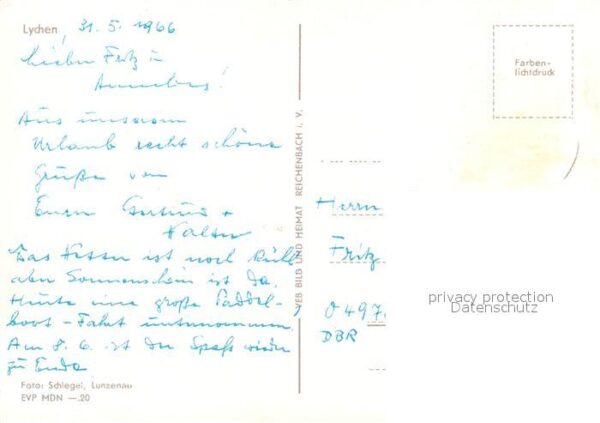 Lychen, 31. 5. 1966
Lieber Fritz u
Annelies!
Aus unserem
Urlaub recht schöne
Grüße von
Euren Gertrud +
Walter
Das Wetter ist noch kühl
aber Sonnenschein ist da.
Heute eine große Paddel-
boot-Fahrt unternommen.
Am 8. 6. ist der Spaß wieder
zu Ende
Foto: Schlegel, Lunzenau
EVP MDN —.20
VEB BILD UND HEIMAT REICHENBACH i. V.
Farben-
lichtdruck
Herrn
Fritz
0497
DBR
privacy protection
Datenschutz